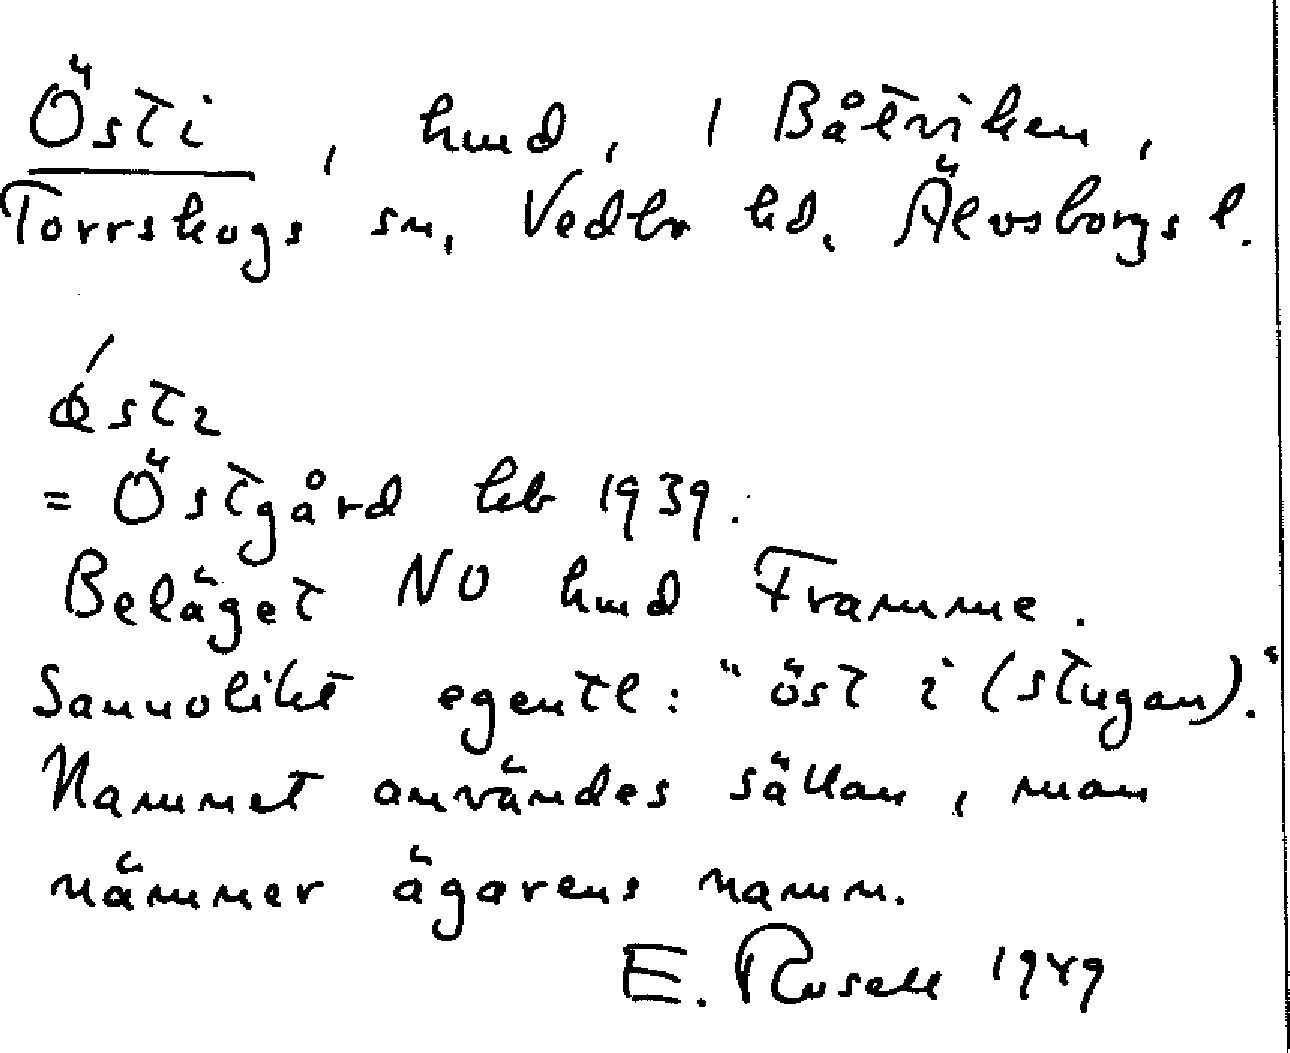 Östi, hmd, i Båtviken,
Torrskogs sn, Vedbo hd, Älvsborgs l.
ǿstɩ
= Östgård hb 1939.
Beläget NO hmd Framme.
Sannolikt egentl: "öst i (stugan)."
Namnet användes sällan, man
nämner ägarens namn.
E. Rusell 1949